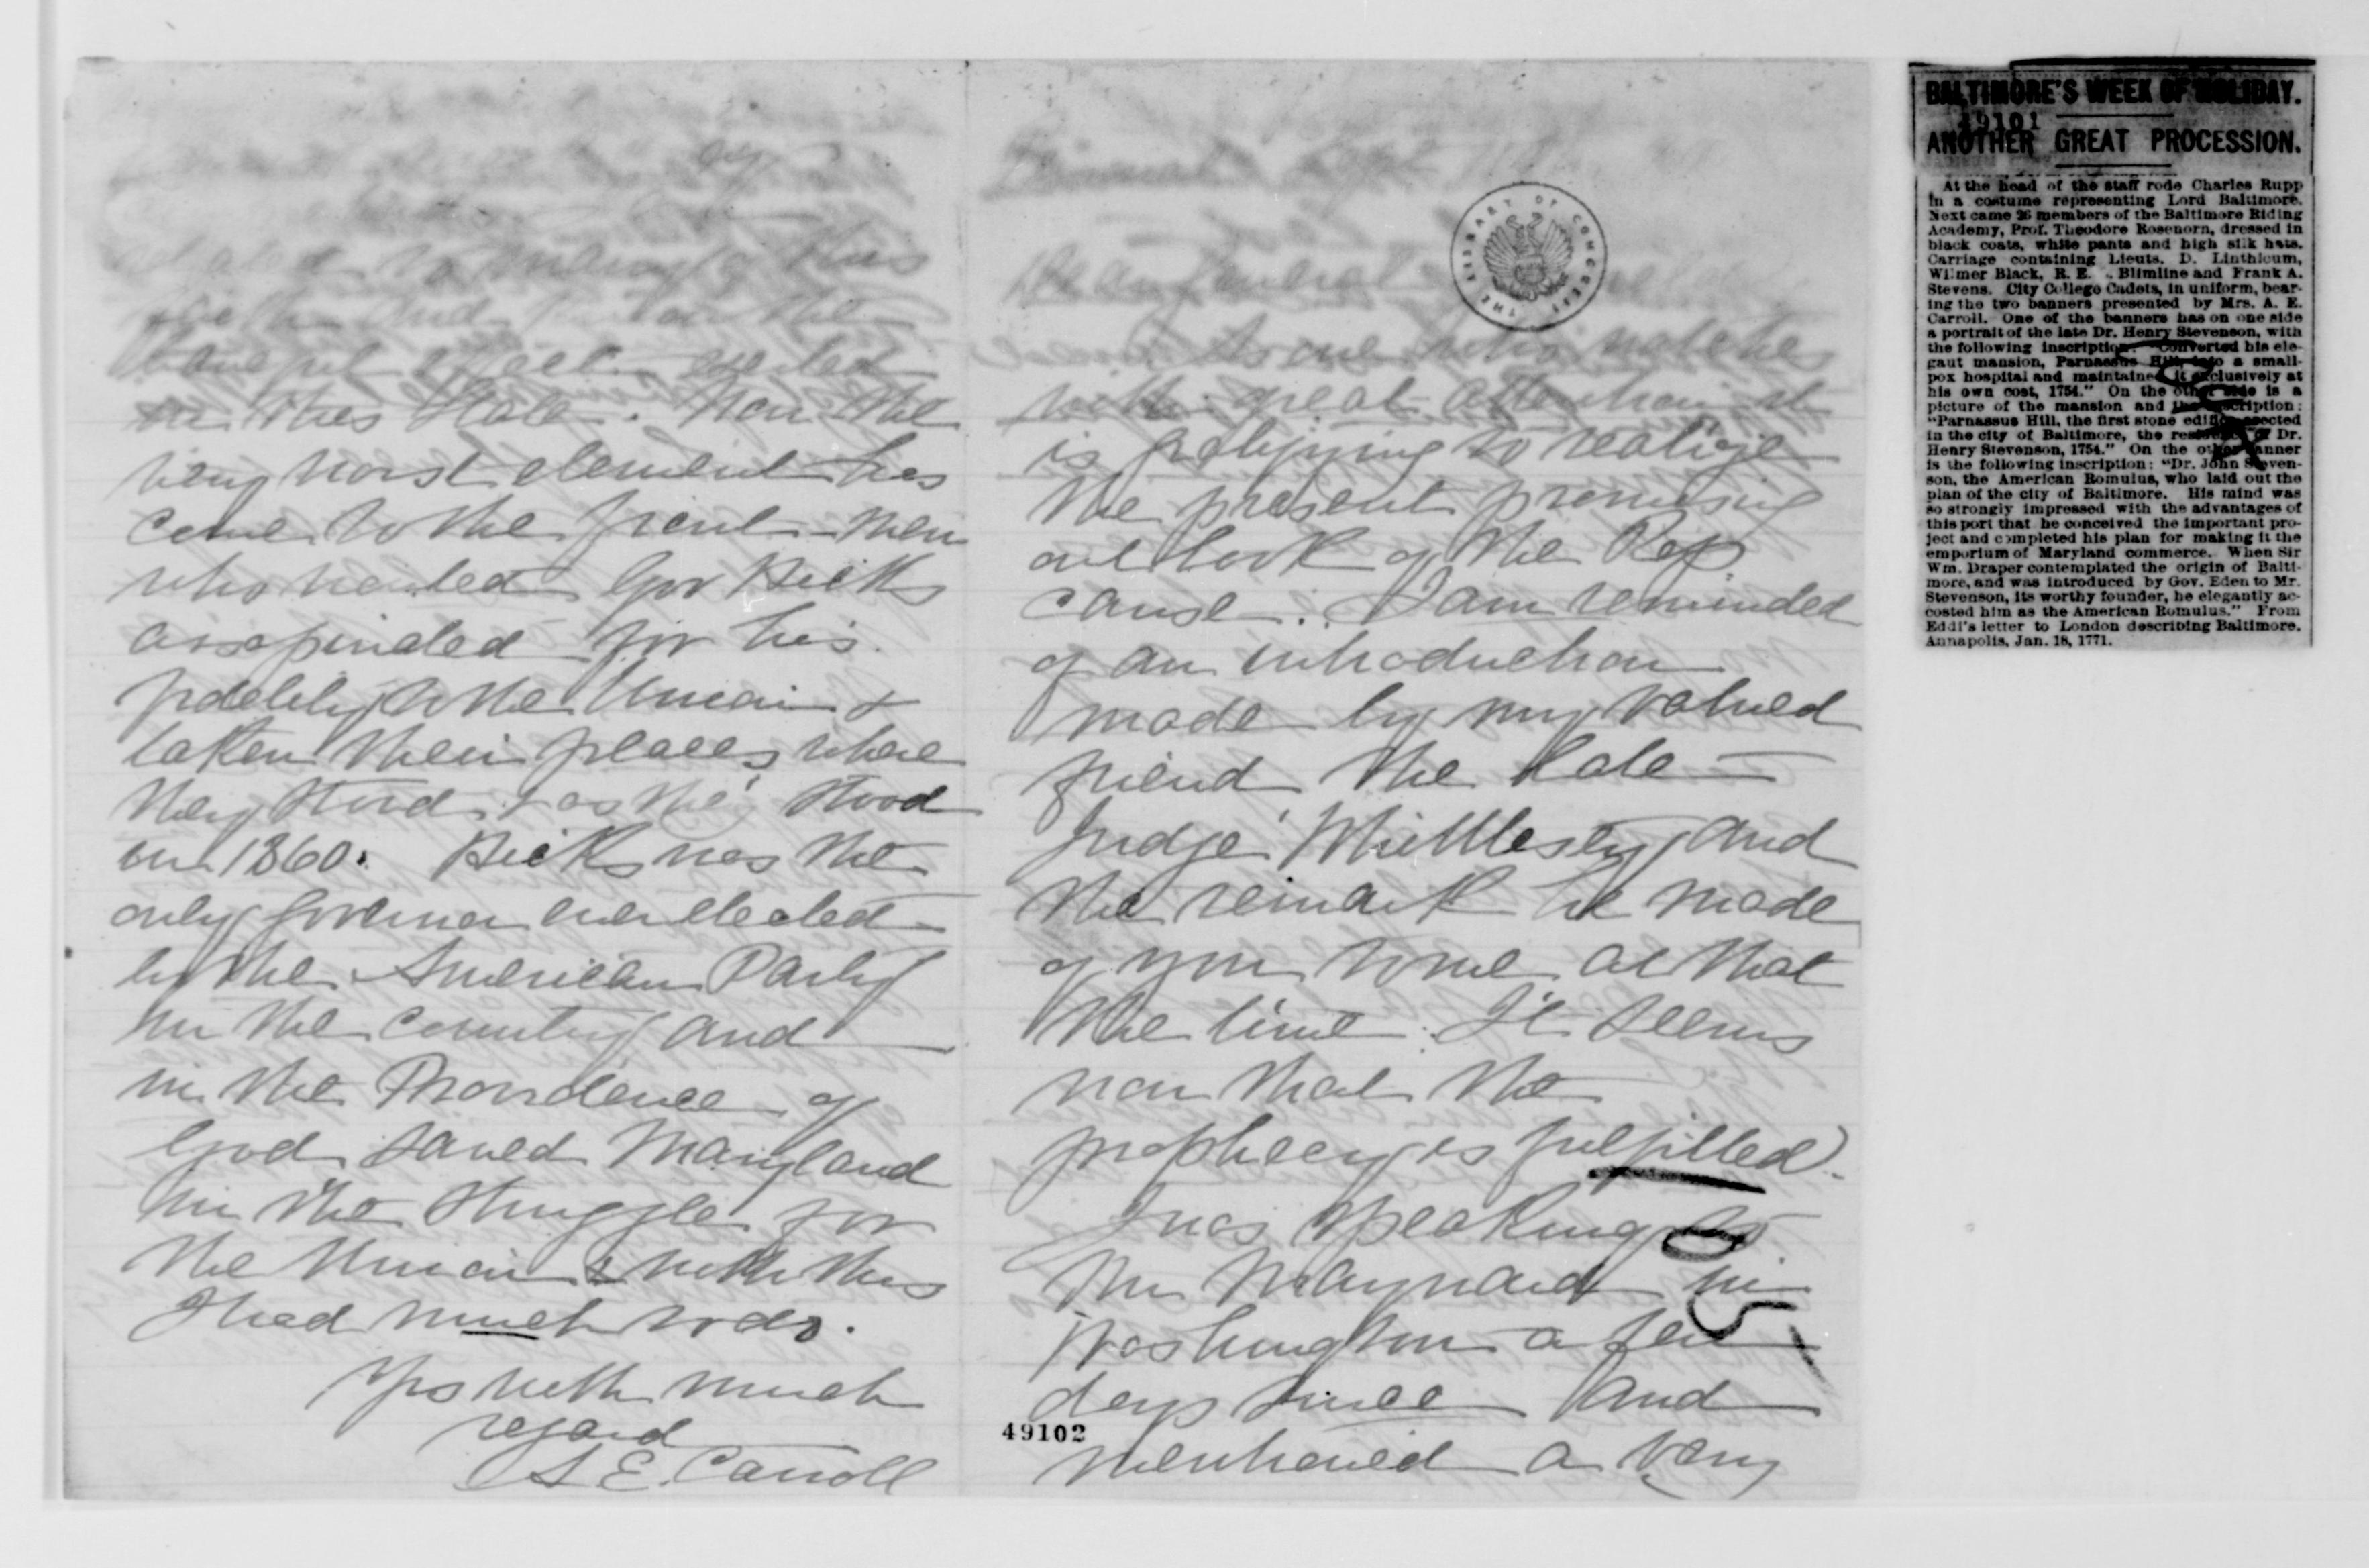 in this State. Now the
very worst element has
come to the front – men
who wanted Gov Hicks
assassinated for his
fidelity to the Union &
taken their places where
they stood & as they stood
in 1860. Hicks was the
only Governor ever elected
by the American Party
in the Country and
in the Providence of
God saved Maryland
in the struggle for
the Union & with this
I had much to do.
Yrs with much
regard
A E. Carroll
Dear General
with great attention it
is gratifying to realize
the present promising
out look of the Rep
cause. I am reminded
of an introduction
made by my valued
friend the late —
Judge Whittlesey and
the remark he made
of you to me at that
the time. It seems
now that the
prophecy is fulfilled.
I was speaking to
Mr Maynard in
Washington a few
days since and
mentioned a very
49102
THE LIBRARY OF CONGRESS
BALTIMORE'S WEEK OF HOLIDAY.
49101
ANOTHER GREAT PROCESSION.
At the head of the staff rode Charles Rupp
in a costume representing Lord Baltimore.
Next came 26 members of the Baltimore Riding
Academy, Prof. Theodore Rosenorn, dressed in
black coats, white pants and high silk hats.
Carriage containing Lieuts. D. Linthicum,
Wilmer Black, R. E. Blimline and Frank A.
Stevens. City College Cadets, in uniform, bear-
ing the two banners presented by Mrs. A. E.
Carroll. One of the banners has on one side
a portrait of the late Dr. Henry Stevenson, with
the following inscription: "Converted his ele-
gaut mansion, Parnassus Hill, into a small-
pox hospital and maintained it exclusively at
his own cost, 1754." On the other side is a
picture of the mansion and the inscription:
"Parnassus Hill, the first stone edifice erected
in the city of Baltimore, the residence of Dr.
Henry Stevenson, 1754." On the other banner
is the following inscription: "Dr. John Steven-
son, the American Romulus, who laid out the
plan of the city of Baltimore. His mind was
so strongly impressed with the advantages of
this port that he conceived the important pro-
ject and completed his plan for making it the
emporium of Maryland commerce. When Sir
Wm. Draper contemplated the origin of Balti-
more, and was introduced by Gov. Eden to Mr.
Stevenson, its worthy founder, he elegantly ac-
costed him as the American Romulus." From
Eddi's letter to London describing Baltimore.
Annapolis, Jan. 18, 1771.